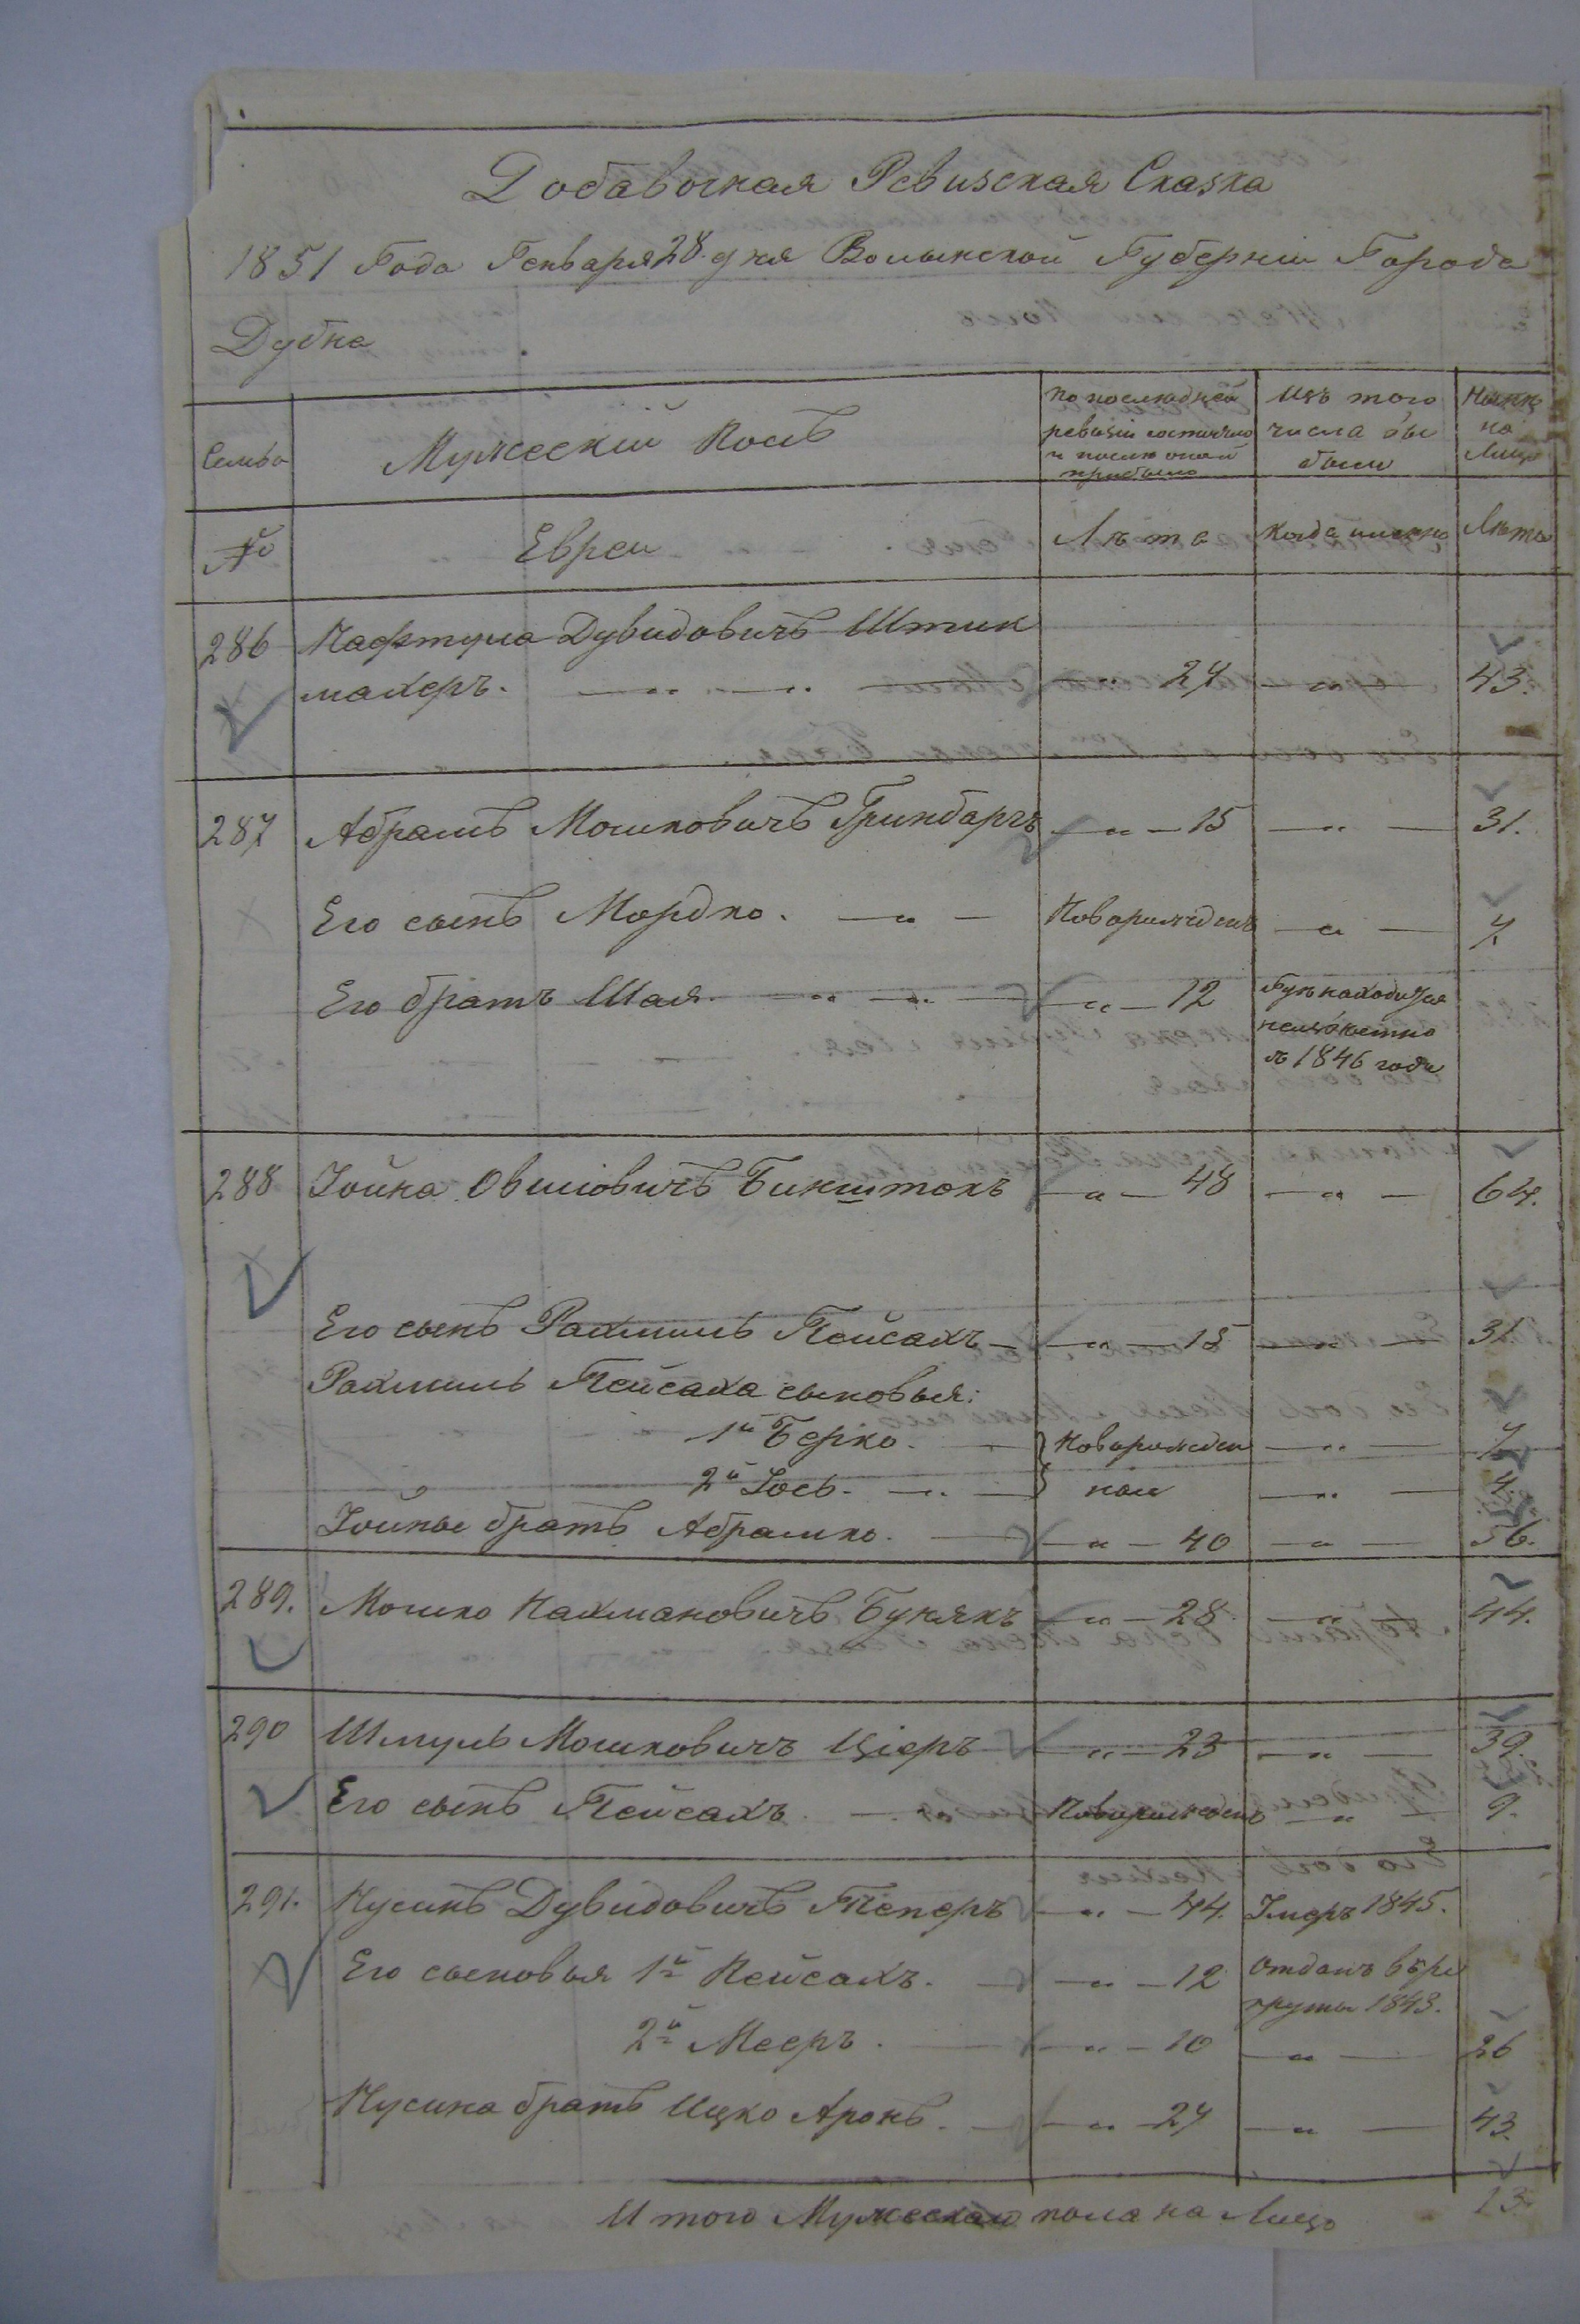 Добавочная Ревизская Сказка
1851 Года Генваря 28 дня Волынской Губерніи Города
Дубна
Семьи
Мужескій Полъ
По последней ревизіи состояло и после оной прибыло
Изъ того числа выбыли
Ныне на лицо
№
Евреи
Лета
Когда именно
Лета
286 Нафтула Дувидовичъ Штик
махеръ. — „ — „ — „ 27 — „ — 43.
287 Абрамъ Мошковичъ Гринбаргъ — „ — 15 — „ — 31.
Его сынъ Мордко. — „ — Новорожденъ — „ — 7.
Его братъ Шая. — „ — „ — — „ — 12 находится
съ 1846 года
288 Іойна Овшіовичъ Бикштокъ — „ — 48 — „ — 64.
Его сынъ Рахмиль Пейсахъ — — „ — 15 — „ — 31
Рахмиль Пейсаха сыновья:
1й Берко. — Новорожден — „ — 7.
2й Іось. — „ — ные — „ — 4.
Іойны братъ Абрашко. — — „ — 40 — „ — 56.
289. Мошко Нахмановичъ Бунякъ — „ — 28 — „ — 44.
290 Шмуль Мошковичъ Ціеръ — „ — 23 — „ — 39.
Его сынъ Пейсахъ. — Новорожденъ — „ — 9.
291. Нусинъ Дувидовичъ Теперъ — „ — 44. Умеръ 1845.
Его сыновья 1й Пейсахъ. — — „ — 12 отданъ въ ре
круты 1843.
2й Мееръ. — — „ — 10 — „ — 26
Нусина братъ Ицко Аронъ. — — „ — 27 — „ — 43.
И того Мужескаго пола на Лицо 13